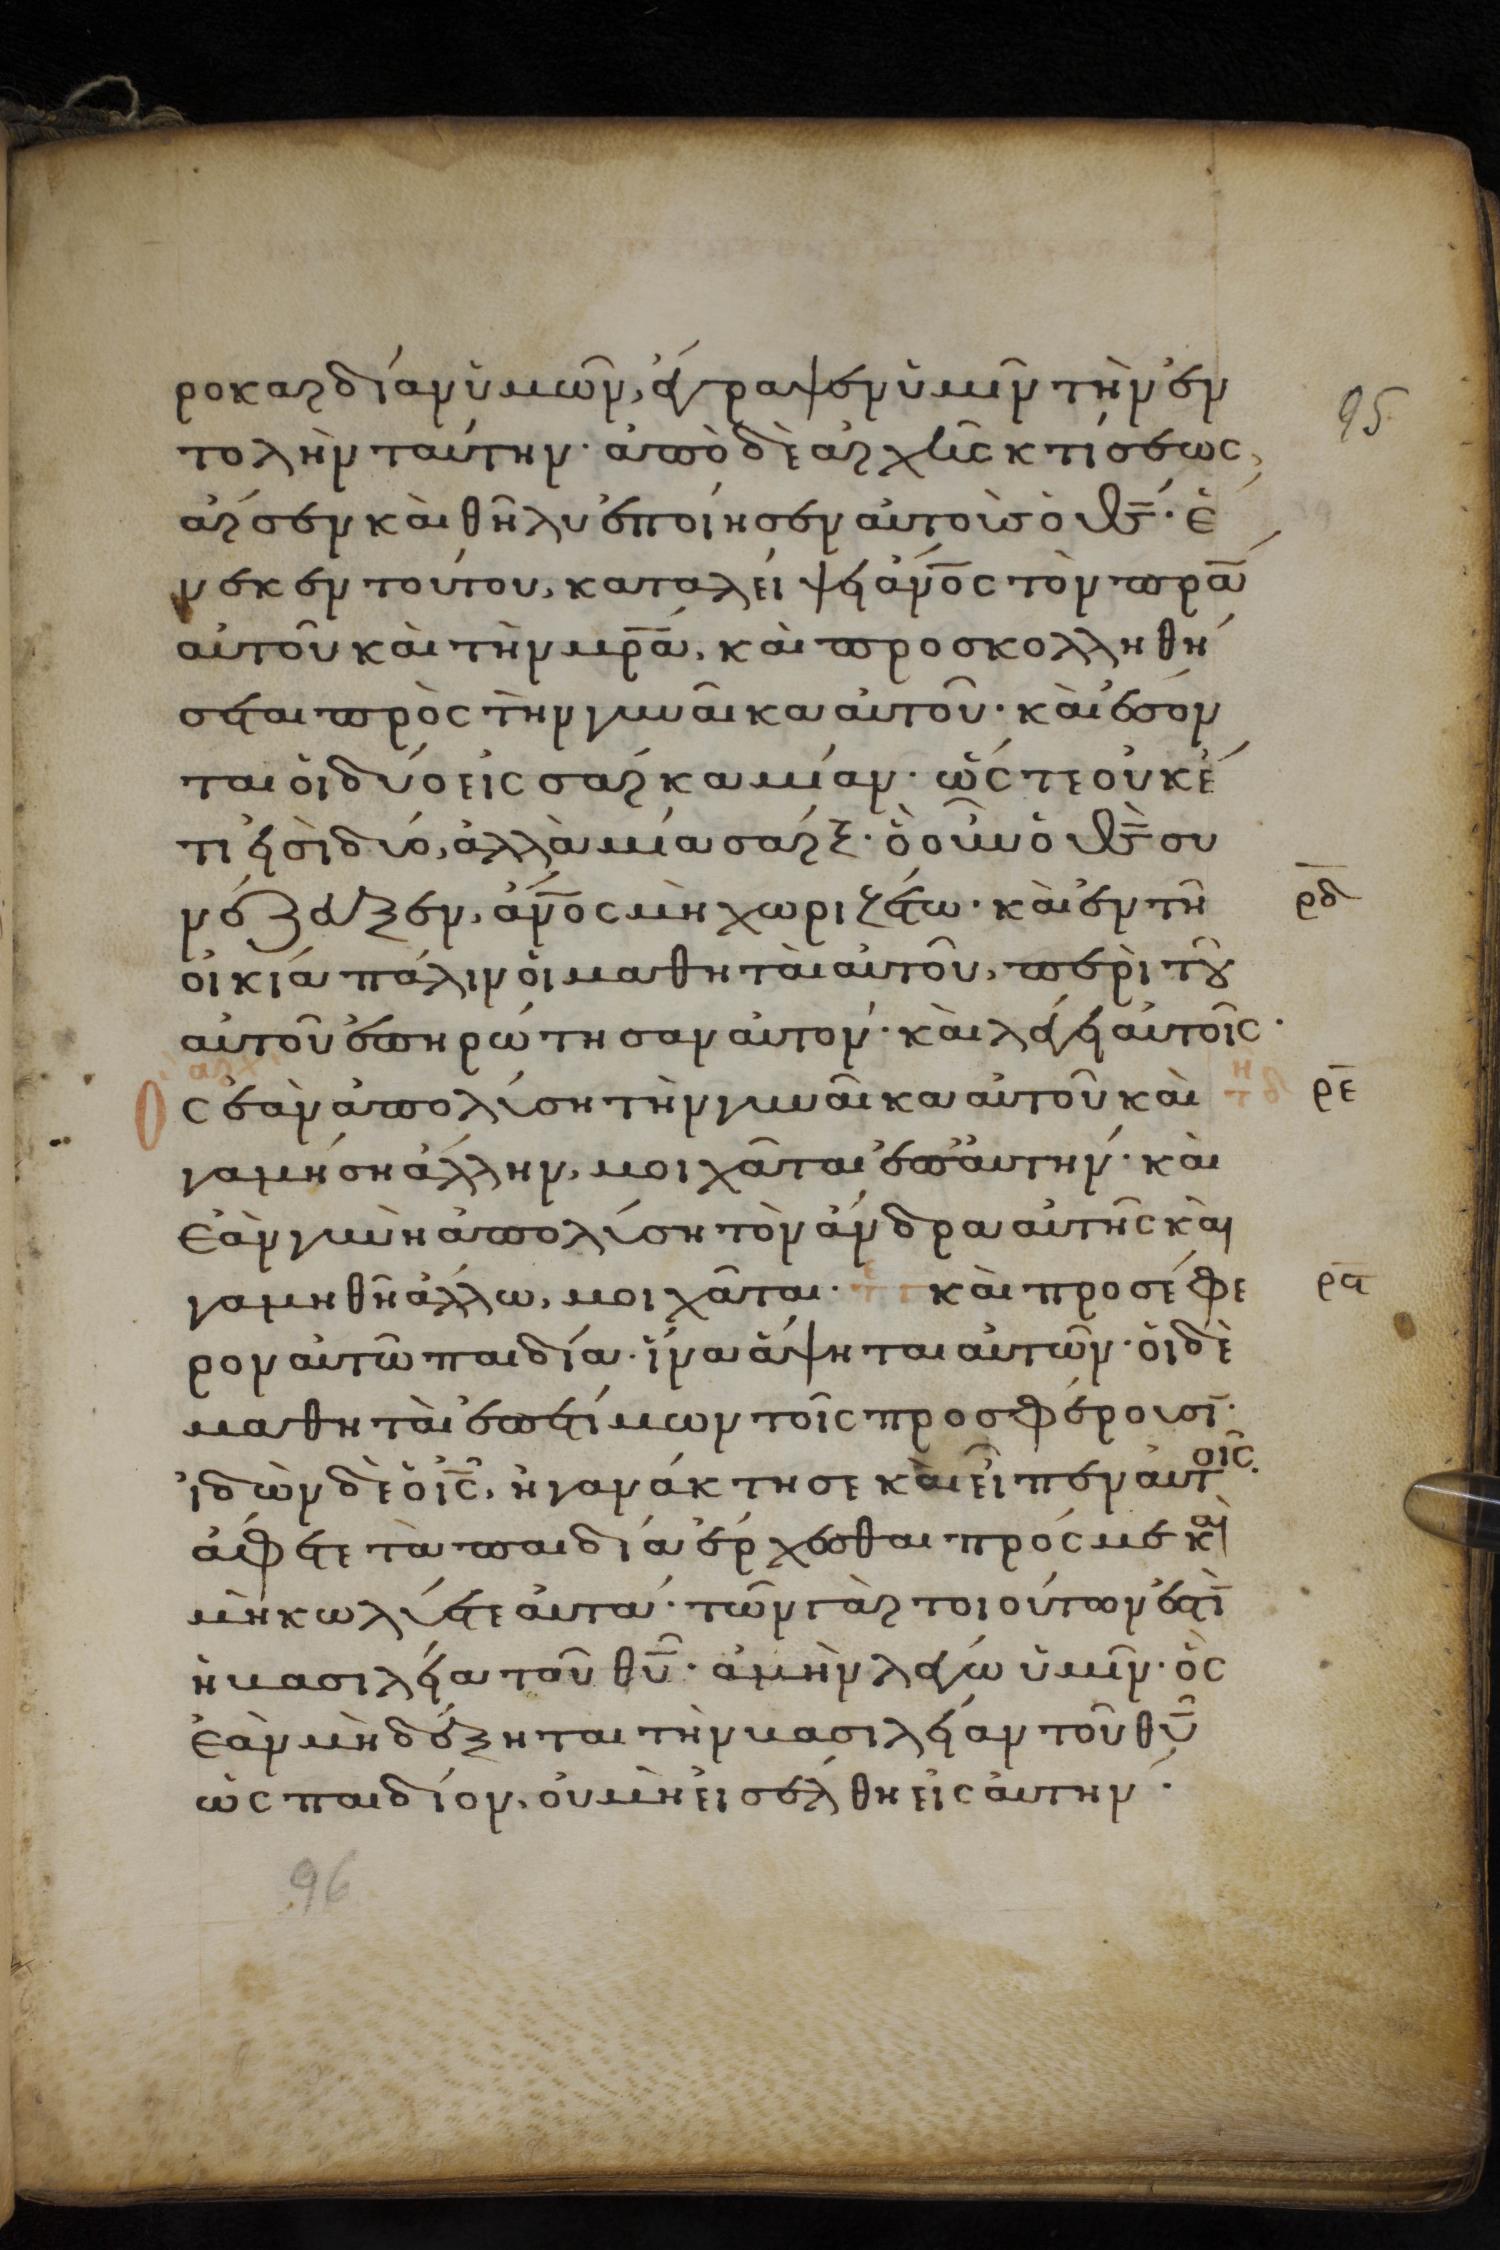 ροκαρδίαν ὑμῶν, ἔγραψεν ὑμῖν τὴν ἐν
95
τολὴν ταύτην· ἀπὸ δὲ ἀρχῆς κτίσεως,
ἄρσεν καὶ θῆλυ ἐποίησεν αὐτοὺς ὁ θς̅· ἕ
νεκεν τούτου, καταλείψει ἄν̅ο̅ς τὸν πρ̅α̅
αὐτοῦ καὶ τὴν μρ̅α̅, καὶ προσκολληθή
σεται πρὸς τὴν γυναῖκα αὐτοῦ· καὶ ἔσον
ται οἱ δύο εἰς σάρκα μίαν· ὥστε οὐκέ
τι εἰσὶ δύο, ἀλλὰ μία σάρξ· ὃ οὖν ὁ θς̅ συ
νέζευξεν, ἄν̅ο̅ς μὴ χωριζέτω· καὶ ἐν τῆ
ρδ̅
οἰκία πάλιν οἱ μαθηταὶ αὐτοῦ, περὶ τοῦ
αὐτοῦ ἐπηρώτησαν αὐτόν· καὶ λέγει αὐτοῖς·
αρχ
Ὃς ἐὰν ἀπολύση τὴν γυναῖκα αὐτοῦ καὶ
ρε̅
γαμήση ἄλλην, μοιχᾶται ἐπ᾽ αὐτήν· καὶ
ἐὰν γυνὴ ἀπολύση τὸν ἄνδρα αὐτῆς καὶ
γαμηθῆ ἄλλω, μοιχᾶται· καὶ προσέφε
ρϛ̅
ρον αὐτῶ παιδία· ἵνα ἅψηται αὐτῶν· οἱ δὲ
μαθηταὶ ἐπετίμων τοῖς προσφέρουσι̅·
ἰδὼν δὲ ὁ ις̅, ἠγανάκτησε καὶ εἶπεν αὐτοῖς·
ἄφετε τὰ παιδία ἔρχεσθαι πρός με καὶ
μὴ κωλύετε αὐτά· τῶν γὰρ τοιούτων ἐστὶ̅
ἡ βασιλεία τοῦ θυ̅· ἀμὴν λέγω ὑμῖν· ὃς
ἐὰν μὴ δέξηται τὴν βασιλείαν τοῦ θυ̅
ὡς παιδίον, οὐ μὴ εἰσέλθη εἰς αὐτήν·
96